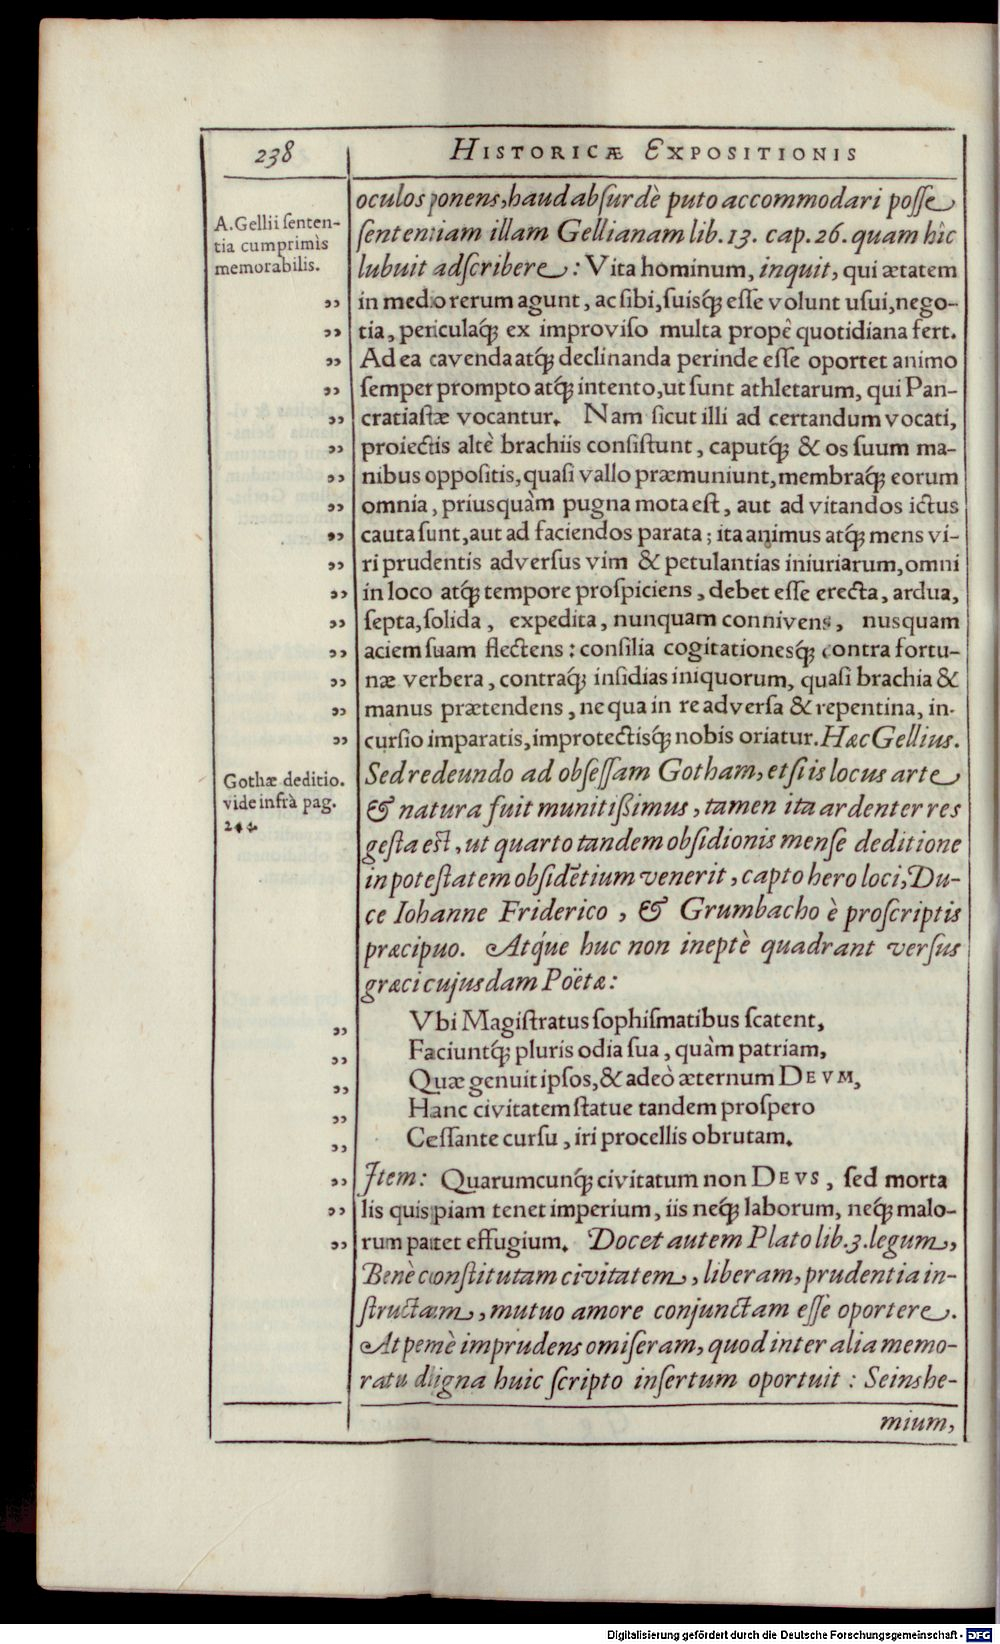 238
HISTORICÆ EXPOSITIONIS
A. Gellii senten-
tia cumprimis
memorabilis.
oculos ponens, haud absurdè puto accommodari posse
sententiam illam Gellianam lib. 13. cap. 26. quam hîc
lubuit adscribere: Vita hominum, inquit, qui ætatem
„ in medio rerum agunt, ac sibi, suisq́; esse volunt usui, nego-
„ tia, periculaq́; ex improviso multa propè quotidiana fert.
„ Ad ea cavenda atq́; declinanda perinde esse oportet animo
„ semper prompto atq́; intento, ut sunt athletarum, qui Pan-
„ cratiastæ vocantur. Nam sicut illi ad certandum vocati,
„ proiectis altè brachiis consistunt, caputq́; & os suum ma-
„ nibus oppositis, quasi vallo præmuniunt, membraq́; eorum
„ omnia, priusquàm pugna mota est, aut ad vitandos ictus
„ cauta sunt, aut ad faciendos parata; ita animus atq́; mens vi-
„ ri prudentis adversus vim & petulantias iniuriarum, omni
„ in loco atq́; tempore prospiciens, debet esse erecta, ardua,
„ septa, solida, expedita, nunquam connivens, nusquam
„ aciem suam flectens: consilia cogitationesq́; contra fortu-
„ næ verbera, contraq́; insidias iniquorum, quasi brachia &
„ manus prætendens, ne qua in re adversa & repentina, in-
„ cursio imparatis, improtectisq́; nobis oriatur. Hæc Gellius.
Gothæ deditio.
vide infrà pag.
244.
Sed redeundo ad obsessam Gotham, etsi is locus arte
& natura fuit munitißimus, tamen ita ardenter res
gesta est, ut quarto tandem obsidionis mense deditione
in potestatem obsidẽtium venerit, capto hero loci, Du-
ce Iohanne Friderico, & Grumbacho è proscriptis
præcipuo. Atq́ue huc non ineptè quadrant versus
græci cujusdam Poëtæ:
„ Vbi Magistratus sophismatibus scatent,
„ Faciuntq́; pluris odia sua, quàm patriam,
„ Quæ genuit ipsos, & adeò æternum DEVM,
„ Hanc civitatem statue tandem prospero
„ Cessante cursu, iri procellis obrutam.
„ Item: Quarumcunq́; civitatum non DEVS, sed morta
„ lis quispiam tenet imperium, iis neq́; laborum, neq́; malo-
„ rum patet effugium. Docet autem Plato lib. 3. legum,
Benè constitutam civitatem, liberam, prudentia in-
structam, mutuo amore conjunctam esse oportere.
At penè imprudens omiseram, quod inter alia memo-
ratu digna huic scripto insertum oportuit: Seinshe-
mium,
Digitalisierung gefördert durch die Deutsche Forschungsgemeinschaft - DFG